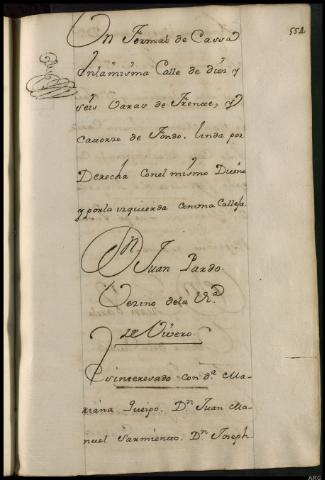 554
Un Formal de Cassa
en la misma Calle de diez y
séis Varas de Frente, y
Catorze de Fondo. linda por
Derecha Con el mismo Dueño
y por la izquierda con una Calleja
Dn Juan Pardo
Vezino de la Va
de Vivero
Es interesado con da Ma-
riana Queipo. Dn Juan Ma-
nuel Sarmiento. Dn Joseph
ARG